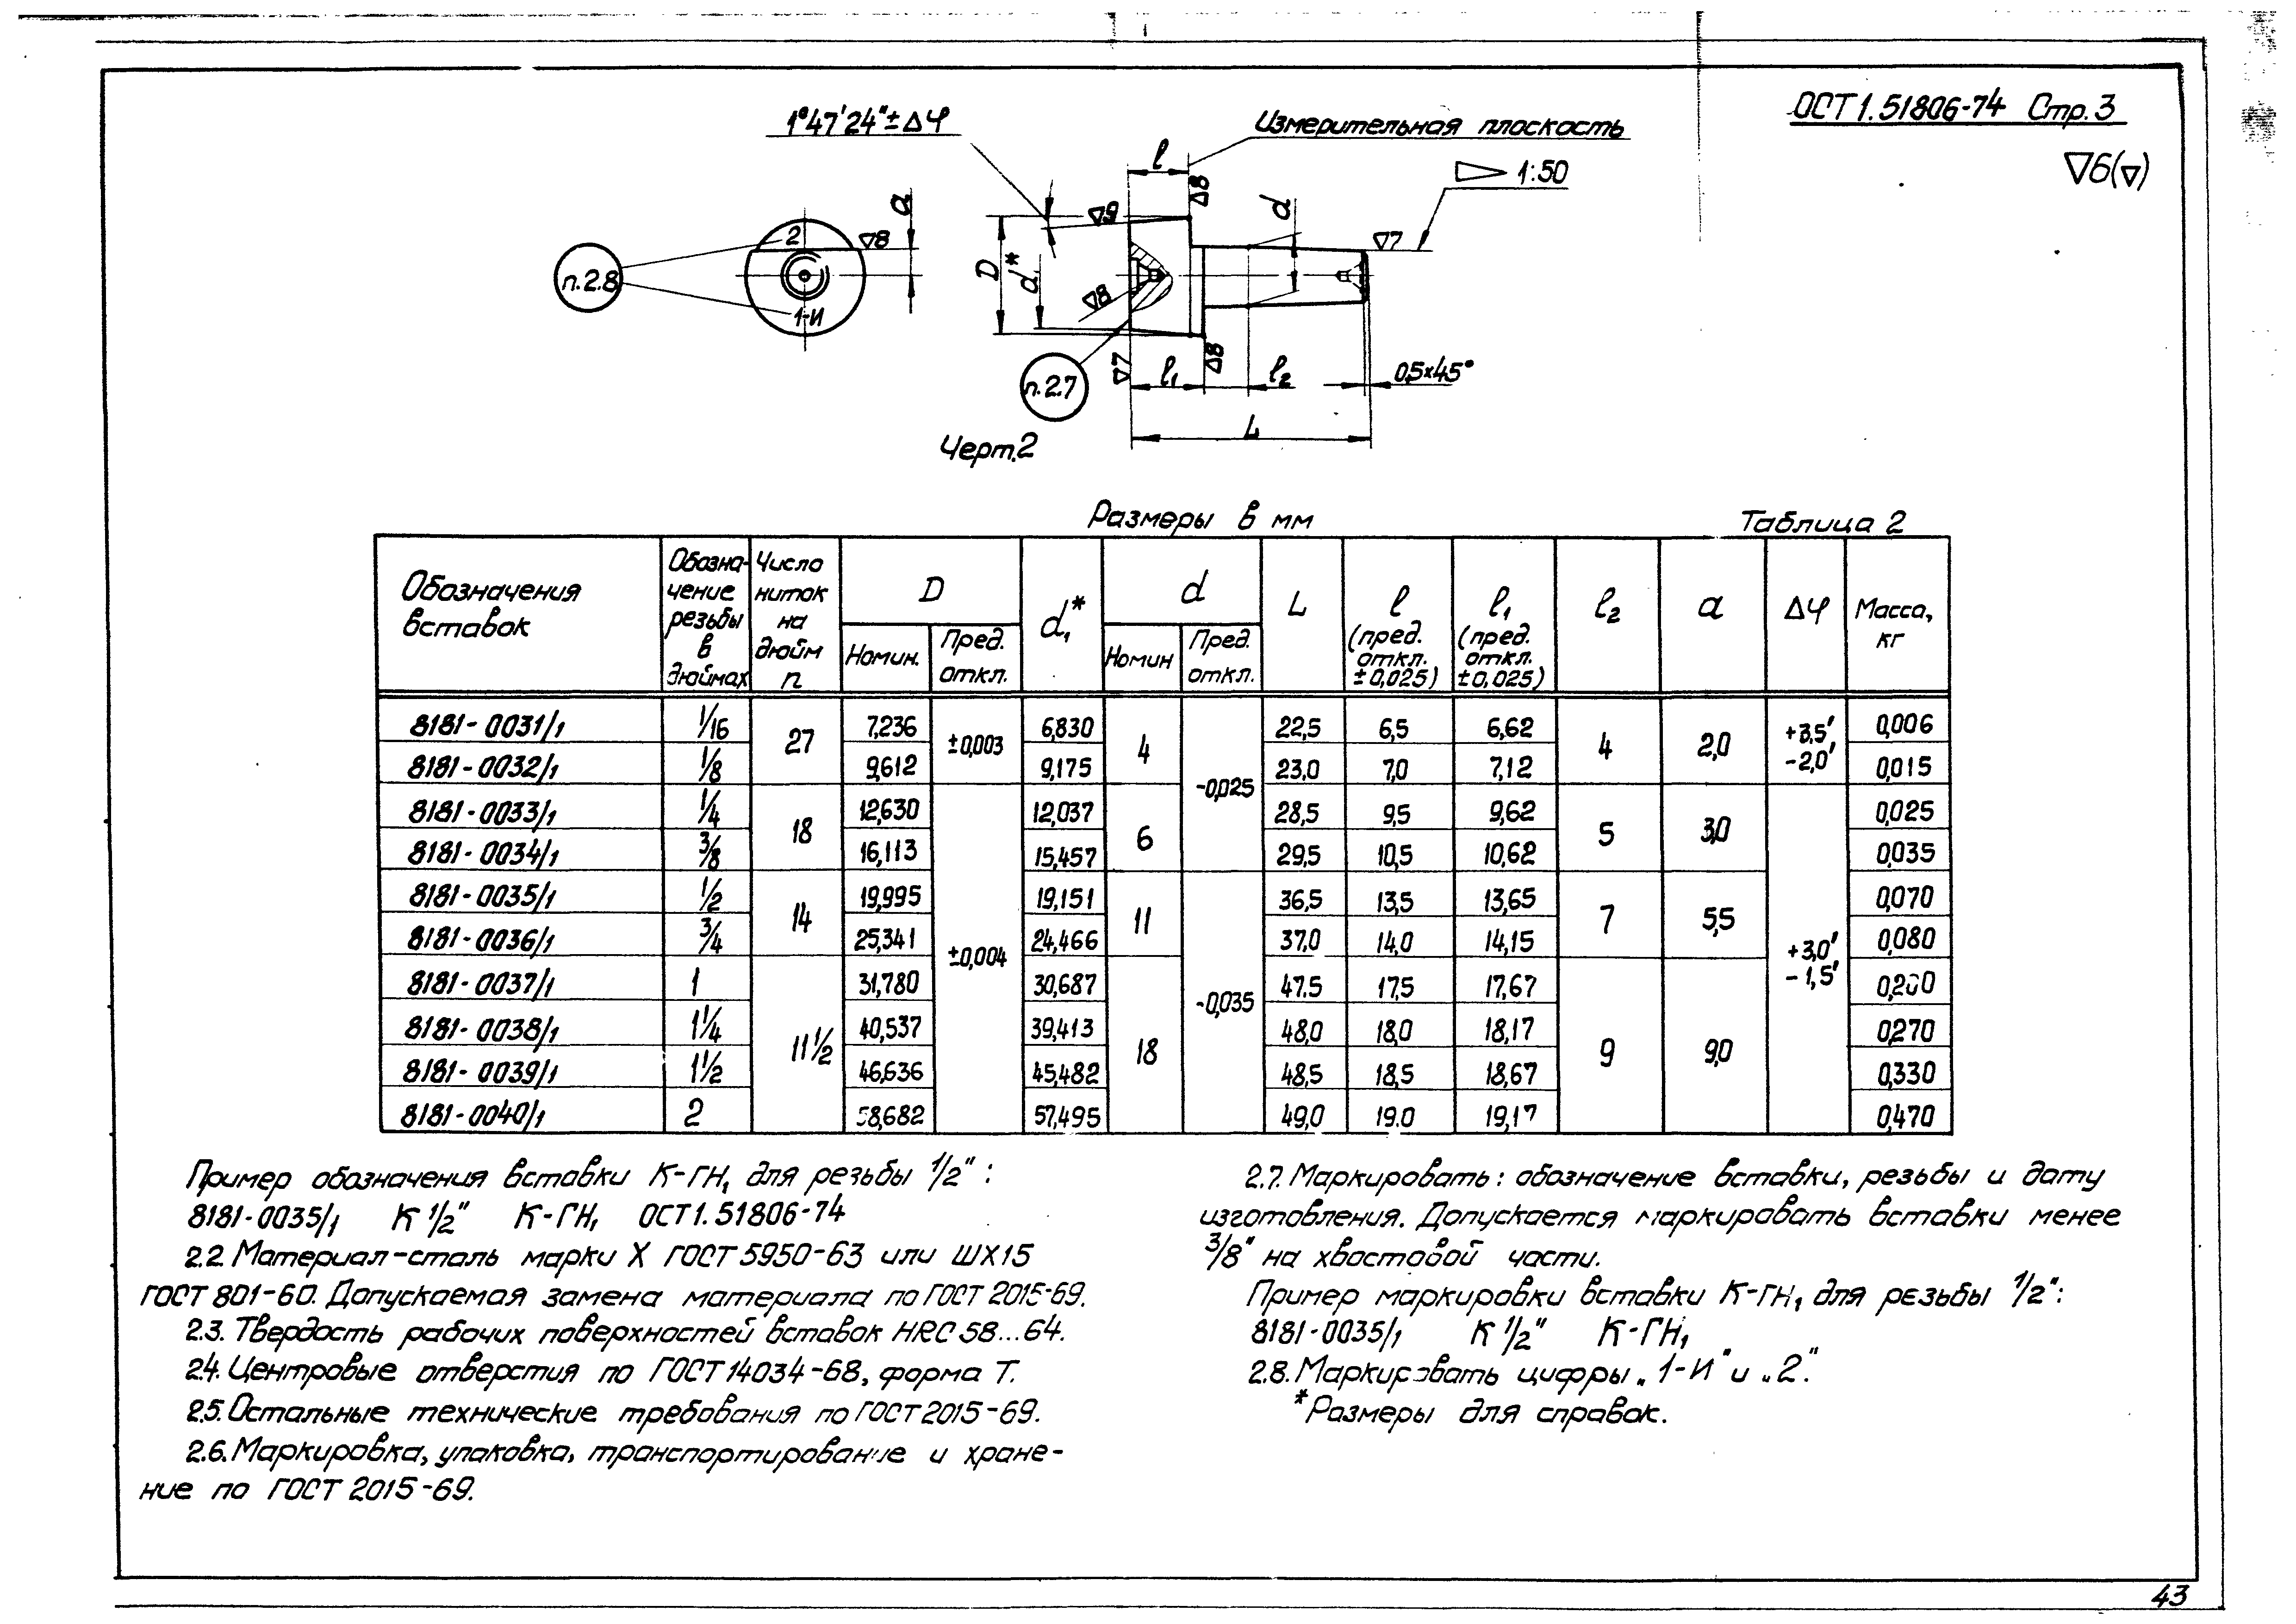 ОСТ 1.51806-74 Стр.3
▽6(▽)
1°47'24"±Δφ
Измерительная плоскость
1:50
l
a
d
2
▽8
▽9
▽8
▽7
п.2.8
D
d₁*
▽8
1-И
п.2.7
▽7
l₁
▽8
l₂
0,5×45°
L
Черт.2
Размеры в мм
Таблица 2
Обозначения вставок | Обозначение резьбы в дюймах | Число ниток на дюйм n | D Номин. | D Пред. откл. | d₁* | d Номин | d Пред. откл. | L | l (пред. откл. ±0,025) | l₁ (пред. откл. ±0,025) | l₂ | a | Δφ | Масса, кг
8181-0031/1 | 1/16 | 27 | 7,236 | ±0,003 | 6,830 | 4 | -0,025 | 22,5 | 6,5 | 6,62 | 4 | 2,0 | +3,5' -2,0' | 0,006
8181-0032/1 | 1/8 | 9,612 | 9,175 | 23,0 | 7,0 | 7,12 | 0,015
8181-0033/1 | 1/4 | 18 | 12,630 | ±0,004 | 12,037 | 6 | 28,5 | 9,5 | 9,62 | 5 | 3,0 | +3,0' -1,5' | 0,025
8181-0034/1 | 3/8 | 16,113 | 15,457 | 29,5 | 10,5 | 10,62 | 0,035
8181-0035/1 | 1/2 | 14 | 19,995 | 19,151 | 11 | -0,035 | 36,5 | 13,5 | 13,65 | 7 | 5,5 | 0,070
8181-0036/1 | 3/4 | 25,341 | 24,466 | 37,0 | 14,0 | 14,15 | 0,080
8181-0037/1 | 1 | 11 1/2 | 31,780 | 30,687 | 18 | 47.5 | 17,5 | 17,67 | 9 | 9,0
8181-0038/1 | 1 1/4 | 40,537 | 39,413 | 48,0 | 18,0 | 18,17 | 0,270
8181-0039/1 | 1 1/2 | 46,636 | 45,482 | 48,5 | 18,5 | 18,67 | 0,330
8181-0040/1 | 2 | 58,682 | 57,495 | 49,0 | 19.0 | 19,17 | 0,470
Пример обозначения вставки К-ГН₁ для резьбы 1/2":
8181-0035/1 К 1/2" К-ГН₁ ОСТ 1.51806-74
2.2. Материал-сталь марки Х ГОСТ 5950-63 или ШХ15
ГОСТ 801-60. Допускаемая замена материала по ГОСТ 2015-69.
2.3. Твердость рабочих поверхностей вставок HRC 58...64.
2.4. Центровые отверстия по ГОСТ 14034-68, форма Т.
2.5. Остальные технические требования по ГОСТ 2015-69.
2.6. Маркировка, упаковка, транспортирование и хране-
ние по ГОСТ 2015-69.
2.7. Маркировать: обозначение вставки, резьбы и дату
изготовления. Допускается маркировать вставки менее
3/8" на хвостовой части.
Пример маркировки вставки К-ГН₁ для резьбы 1/2":
8181-0035/1 К 1/2" К-ГН₁
2.8. Маркировать цифры „1-И" и „2".
*Размеры для справок.
43